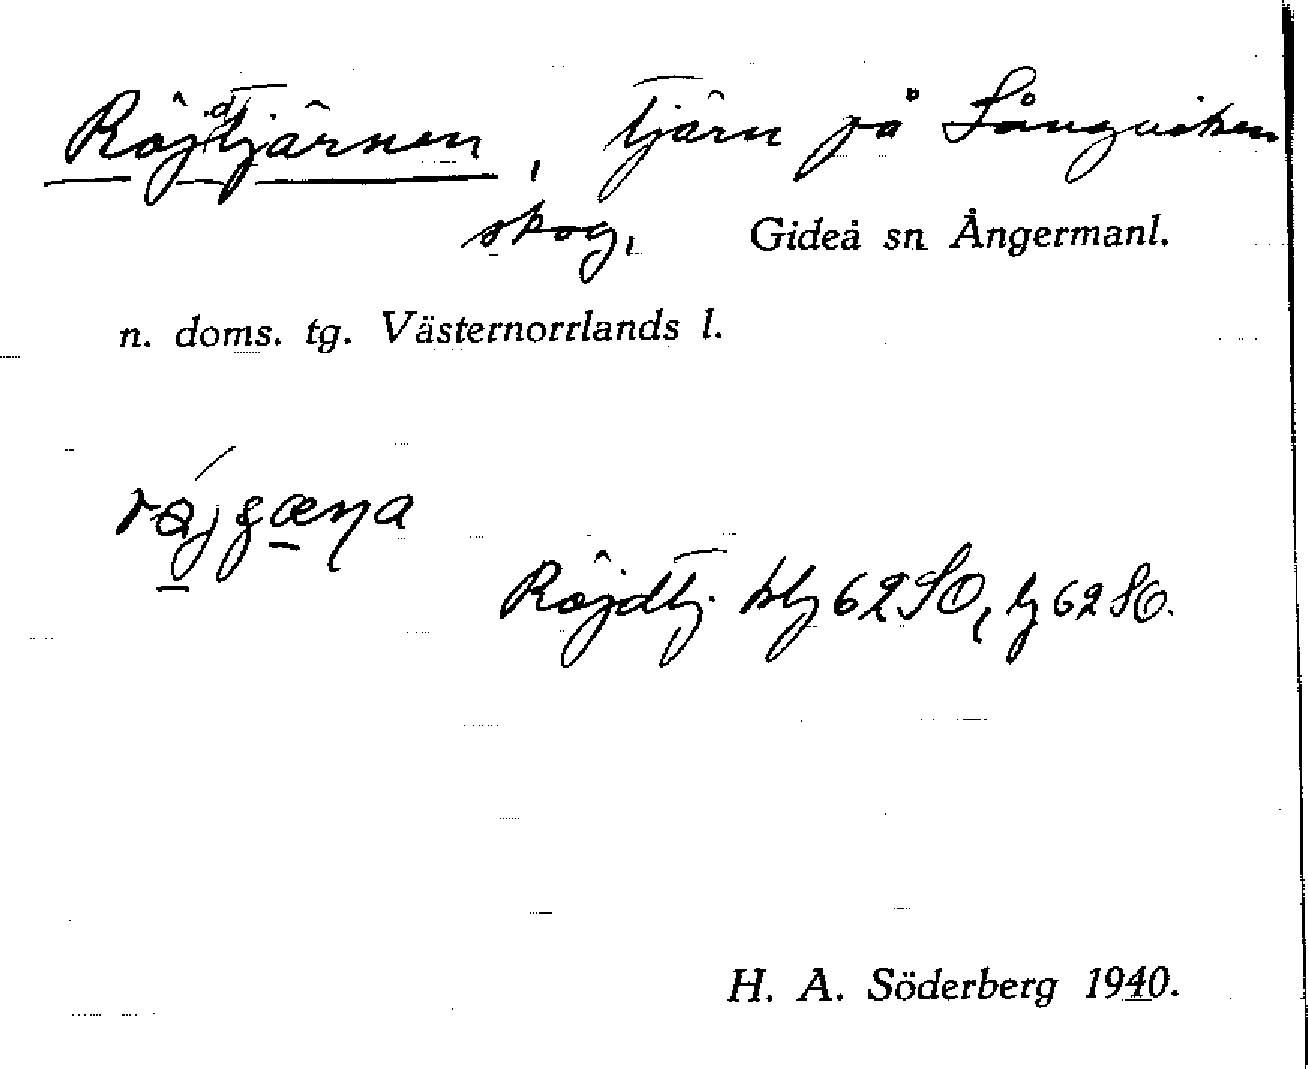 Röjdtjärnen, tjärn på Långviken
skog, Gideå sn Ångermanl.
n. doms. tg. Västernorrlands l.
Röjdtj. blg 62 SO, lg 62 SO.
H. A. Söderberg 1940.